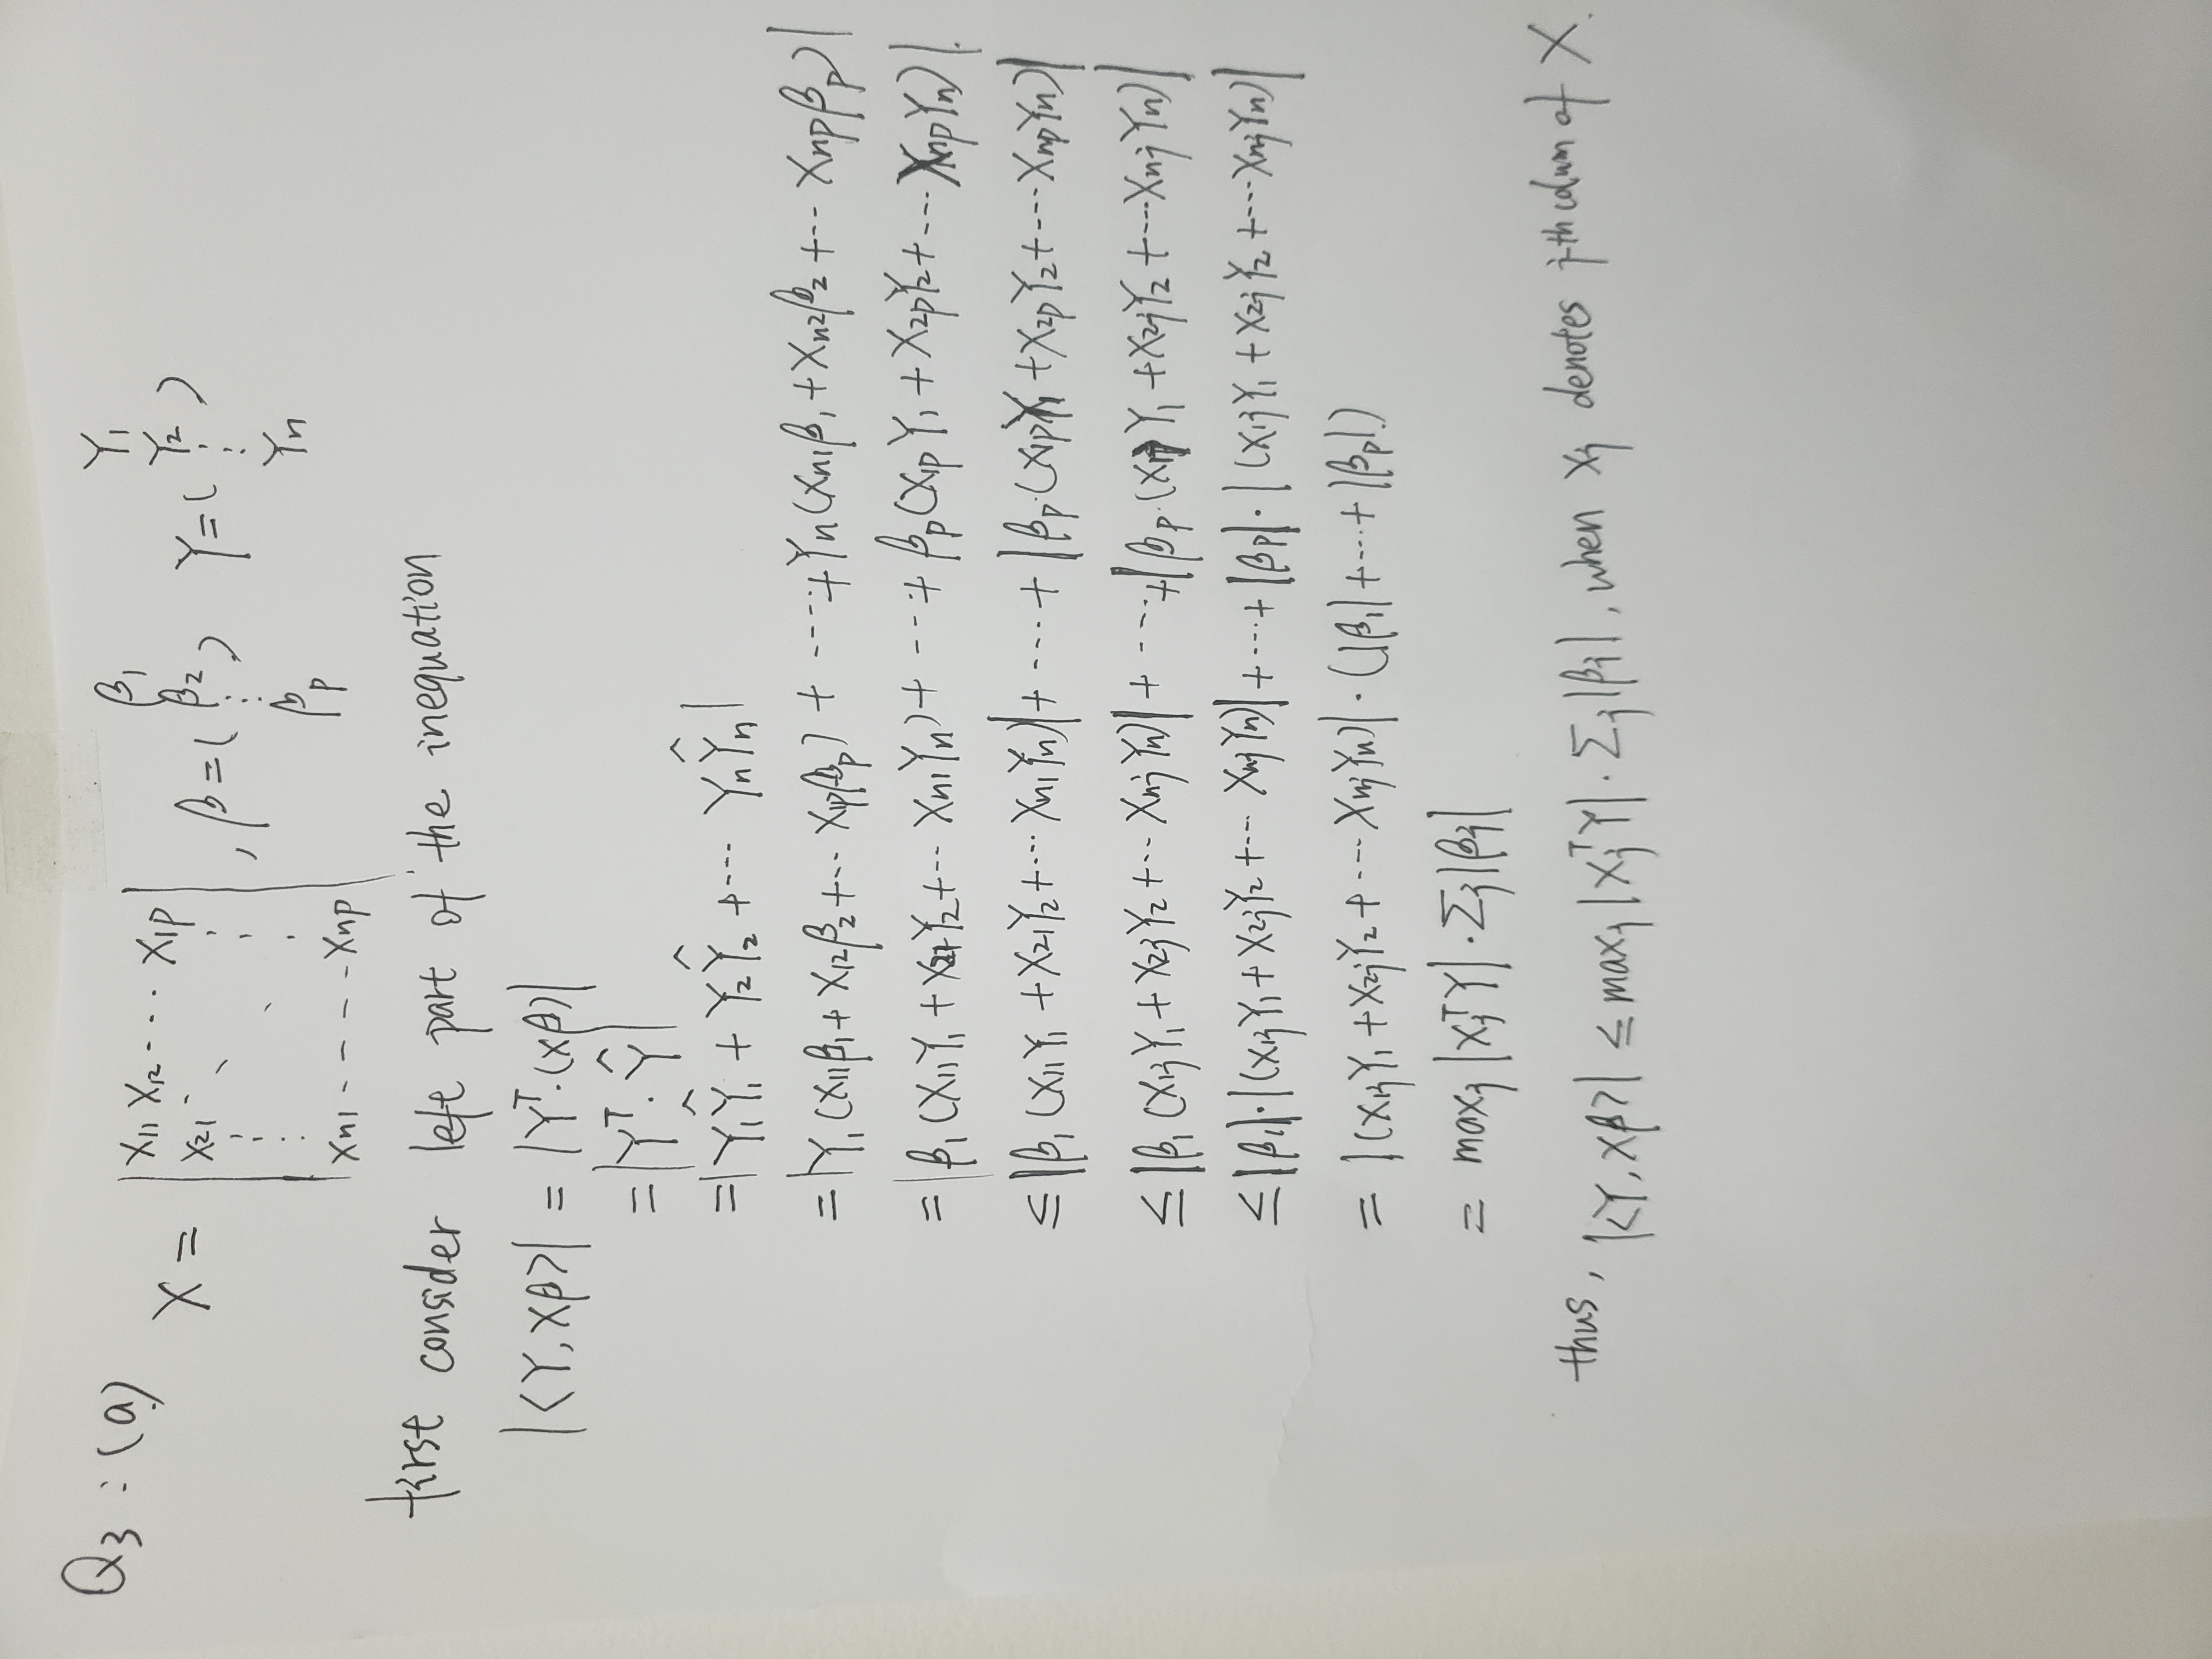 Q3 : (a)
X = | X11 X12 --- X1p X21 ⋱ ⋮ ⋮ Xn1 - - - - Xnp | , β = ( β1 β2 ⋮ βp ) Y = ( Y1 Y2 ⋮ Yn )
first consider left part of the inequation
|<Y, Xβ>| = |Y^T·(Xβ)|
= |Y^T · Ŷ|
= |Y1Ŷ1 + Y2Ŷ2 + ··· YnŶn|
= |Y1(X11β1 + X12β2 + ··· X1pβp) + ---- + Yn(Xn1β1 + Xn2β2 + ··· Xnpβp)|
= |β1(X11Y1 + X21Y2 + ··· Xn1Yn) + ---- + βp(X1pY1 + X2pY2 + ··· XnpYn)|.
≤ |β1(X11Y1 + X21Y2 + ··· Xn1Yn)| + ---- + |βp·(X1pY1 + X2pY2 + ··· XnpYn)|
≤ |β1(X1jY1 + X2jY2 + ··· XnjYn)| + ---- + |βp·(X1jY1 + X2jY2 + ··· XnjYn)|
≤ |β1|·|(X1jY1 + X2jY2 + ··· XnjYn)| + ··· + |βp|·|(X1jY1 + X2jY2 + ··· XnjYn)|
= |(X1jY1 + X2jY2 + ··· XnjYn)| · (|β1| + ··· + |βp|)
= maxj |Xj^T Y| · Σj|βj|
thus, |<Y, Xβ>| ≤ maxj |Xj^T Y| · Σj|βj|, when Xj denotes j-th colum of X.